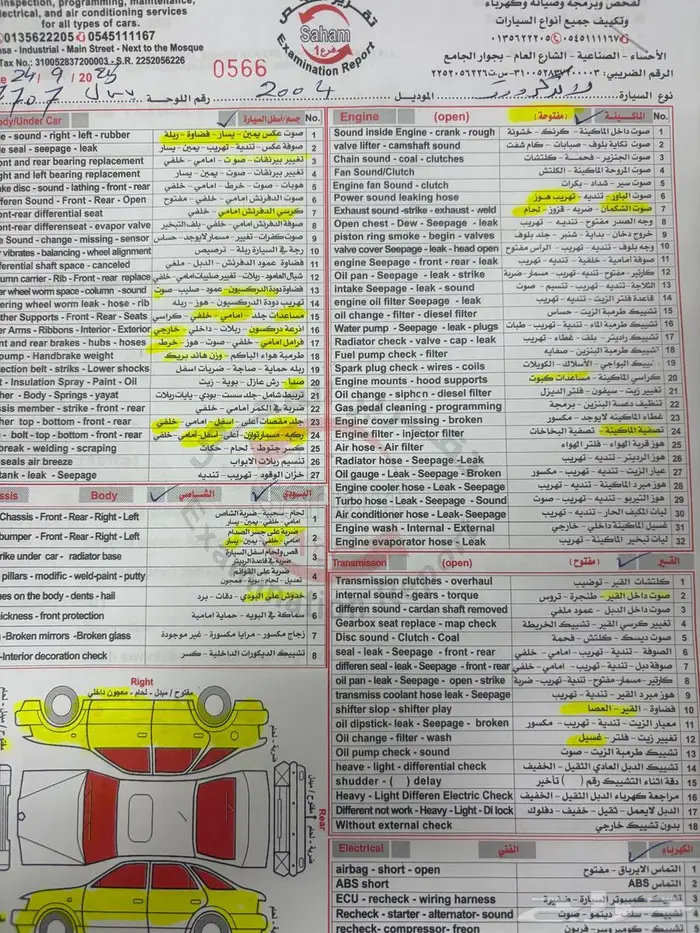 nspection, programming, maintenance,
electrical, and air conditioning services
for all types of cars.
0135622205 0545111167
nsa - Industrial - Main Street - Next to the Mosque
Tax No.: 310052837200003 - S.R. 2252056226
24/9/20
0566
تقرير فحص
Saham
فرع 1
Examination Report
لفحص وبرمجة وصيانة وكهرباء
وتكييف جميع أنواع السيارات
٠١٣٥٦٢٢٢٠٥ ٠٥٤٥١١١١٦٧
الأحساء - الصناعية - الشارع العام - بجوار الجامع
نوع السيارة
الموديل 2004
رقم اللوحة
Body/Under Car
جسم/أسفل السيارة
No.
e - sound - right - left - rubber صوت عكس يمين - يسار - فضاوة - ربلة 1
e seal - seepage - leak صوفة عكس - تندية - تهريب - يمين - يسار 2
ont and rear bearing replacement تغيير بيرنقات - صوت - امامي - خلفي 3
ght and left bearing replacement تغيير بيرنقات - صوت - يمين - يسار 4
ake disc - sound - lathing - front - rear هوبات - صوت - خرط - امامي - خلفي 5
fferen Sound - Front - Rear - Open صوت الدفرنش امامي - خلفي - مفتوح 6
ont-rear differential seat كرسي الدفرنش امامي - خلفي 7
ont-rear differenseat - evapor valve صوفة الدفرنش امامي - خلفي - بلف التبخير 8
e Sound - change - missing - sensor صوت كفرات - تغيير - مسمار لايوجد - حساس 9
r vibrates - balancing - wheel alignment رجة في السيارة ربلة - ترصيص 10
fferential shaft space - canceled فضاوة عمود الدفرنش - الدبل - ملغي 11
lumn carrier - Rib - Front - Rear replace 12
er wheel worm space - column - sound فضاوة دودة الدركسون - عمود - صليب - صوت 13
ering wheel worm leak - hose - rib تهريب دودة الدركسون - هوز - ربله 14
ther Supports - Front - Rear - Seats مساعدات جلد - امامي - خلفي - كراسي 15
er Arms - Ribbons - Interior - Exterior اذرعة دركسون - ربلات - داخلي - خارجي 16
nt and rear brakes - hubs - hoses فرامل امامي - خلفي - صوت - هوز - خرط 17
pump - Handbrake weight طرمبة هواء الباكم - وزن هاند بريك 18
tection belt - striks - Lower shocks ربله حماية - صاجة - ضربات اسفل 19
t - Insulation Spray - Paint - Oil صدا - رش عازل - بوية - زيت 20
her - Body - Springs - yayat تربيط شامل جلد سست - بودي - يايات ربلات 21
assis member - strike - front - rear ضربة في الكمر أمامي - خلفي 22
ther top - bottom - front - rear جلد مقصات أعلى - اسفل - امامي - خلفي 23
e - bolt - top - bottom - front - rear ركبه - مسمار توازن - أعلى - اسفل - امامي - خلفي 24
break - welding - scraping كسر جنوط - لحام - حكات 25
seals air breeze تنسيم ربلات الابواب 26
tank - leak - Seepage خزان الوقود - تهريب - تندية 27
assis Body الشاصي البودي
Chassis - Front - Rear - Right - Left لحام - سحبية - ضربة الشاص امامي - خلفي - يمين - يسار 1
bumper - Front - Rear - Right - Left ضربة على جسر الصدام امامي - خلفي - يمين - يسار 2
rike under car - radiator base قص ولحام اسفل السيارة ضربة في قاعدة الرديتر 3
pillars - modific - weld-paint - putty ضربة على القوائم تعديل - لحام - بوية - معجون 4
hes on the body - dents - hail خدوش على البودي - دقات - برد 5
hickness - front protection سماكة في البويه - حماية امامية 6
g - Broken mirrors - Broken glass زجاج مكسور - مرايا مكسورة - غير موجودة 7
- Interior decoration check تشييك الديكورات الداخلية - كسر 8
Right
مفتوح / مبدل - لحام - معجون داخلي
ضربة - لحام
Rear
مفتوح / مبدل
ضربة - لحام
Engine (open) الماكينة (مفتوحة) No.
Sound inside Engine - crank - rough صوت داخل الماكينة - كرنك - خشونة 1
valve lifter - camshaft sound صوت تكاية بلوف - صبابات - كام شفت 2
Chain sound - coal - clutches صوت الجنزير - فحمـة - كلتشات 3
Fan Sound/Clutch صوت المروحة الماكينة - الكلتش 4
Engine fan Sound - clutch صوت سير - شداد - بكرات 5
Power sound leaking hose صوت الباور - تندية - تهريب هوز 6
Exhaust sound -strike - exhaust - weld صوت الشكمان - ضربه - قزوز - لحام 7
Open chest - Dew - Seepage - leak وجه الصدر مفتوح - تندية - تهريب 8
piston ring smoke - begin - valves خروج دخان - بداية - شنبر - جلد بلوف 9
valve cover Seepage - leak - head open وجه بلوف - تندية - تهريب - الراس مفتوح 10
engine Seepage - front - rear - leak صوفة امامية - خلفية - تندية - تهريب 11
Oil pan - Seepage - leak - strike كارتير - مفتوح - تندية - تهريب - مسمار - ضربة 12
intake Seepage - leak - sound الثلاجة - تندية - تهريب - تنسيم - صوت 13
engine oil filter Seepage - leak قاعدة فلتر الزيت - تندية - تهريب 14
oil change - filter - diesel تشييك طرمبة الزيت - حساس 15
Water pump - Seepage - leak - plugs تشييك طرمبة الماء - تندية - تهريب - طبات 16
Radiator check - valve - cap - leak تشييك راديتر - بلف - غطاء - تهريب 17
Fuel pump check - filter تشييك طرمبة البنزين - صفايه 18
Spark plug check - wires - coils تشييك البواجي - الأسلاك - الكويلات 19
Engine mounts - hood supports كراسي الماكينة - مساعدات كبوت 20
Oil change - siphcn - diesel - filter تغيير زيت - سيفون - فلتر الديزل 21
Gas pedal cleaning - programming تنظيف دعسة البنزين - برمجة 22
Engine cover missing - broken غطاء الماكينة لايوجد - مكسور 23
Engine filter - injector filter تصفية الماكينة - تصفية البخاخات 24
Air hose - Air filter هوز قربة الهواء - فلتر الهواء 25
Radiator hose - Seepage -Leak هوز الرديتر - تندية - تهريب 26
Oil gauge - Leak - Seepage - Broken عيار الزيت - تندية - تهريب - مكسور 27
Engine cooler hose - Leak - Seepage هوز مبرد الماكينة - تندية - تهريب 28
Turbo hose - Leak - Seepage - Sound هوز التيربو - تندية - تهريب - صوت 29
Air conditioner hose - Leak - Seepage ليات المكيف الحار - تندية - تهريب 30
Engine wash - Internal - External غسيل الماكينة داخلي - خارجي 31
Engine evaporator hose - Leak ليات تبخير الماكينة - تهريب 32
Transmisson (open) القير (مفتوح)
Transmission clutches - overhaul كلتشات القير - توضيب 1
internal sound - gears - torque صوت داخل القير - طنجرة - تروس 2
differen sound - cardan shaft removed صوت داخل الدبل - عمود ملغي 3
Gearbox seat replace - map check تغيير كرسي القير - تشييك الخريطة 4
Disc sound - Clutch - Coal صوت ديسك - كلتش - فحمة 5
seal - leak - Seepage - front - rear الصوفة - تندية - تهريب - امامي - خلفي 6
differen seal - leak - Seepage - front - rear صوفة دبل - تندية - تهريب - امامي - خلفي 7
oil pan - leak - Seepage - open - strike كارتير - مسمار - مفتوح - تندية - تهريب - ضربة 8
transmiss coolant hose leak - Seepage هوز مبرد القير - تندية - تهريب 9
shifter slop - shifter play فضاوة - القير - العصا 10
oil dipstick - leak - Seepage - broken معيار الزيت - تندية - تهريب - مكسور 11
Oil change - filter - wash تغيير زيت - فلتر - غسيل 12
Oil pump check - sound تشييك طرمبة الزيت - صوت 13
heave - light - differential check تشييك الدبل العادي الثقيل - الخفيف 14
shudder - ( ) delay دقة أثناء التشييك رقم ( ) تأخير 15
Heavy - Light Differen Electric Check مراجعة كهرباء الدبل الثقيل - الخفيف 16
Different not work - Heavy - Light - Di lock الدبل لايعمل - ثقيل - خفيف - دفلوك 17
Without external check بدون تشييك خارجي 18
Electrical الفني الكهرباء
airbag - short - open التماس الايرباق - مفتوح 1
ABS short التماس ABS 2
ECU - recheck - wiring harness تشييك كمبيوتر السيارة - ضفيرة 3
Recheck - starter - alternator - sound تشييك - سلف - دينمو - صوت 4
recheck- compressor- freon تشييك - كمبروسر - فريون